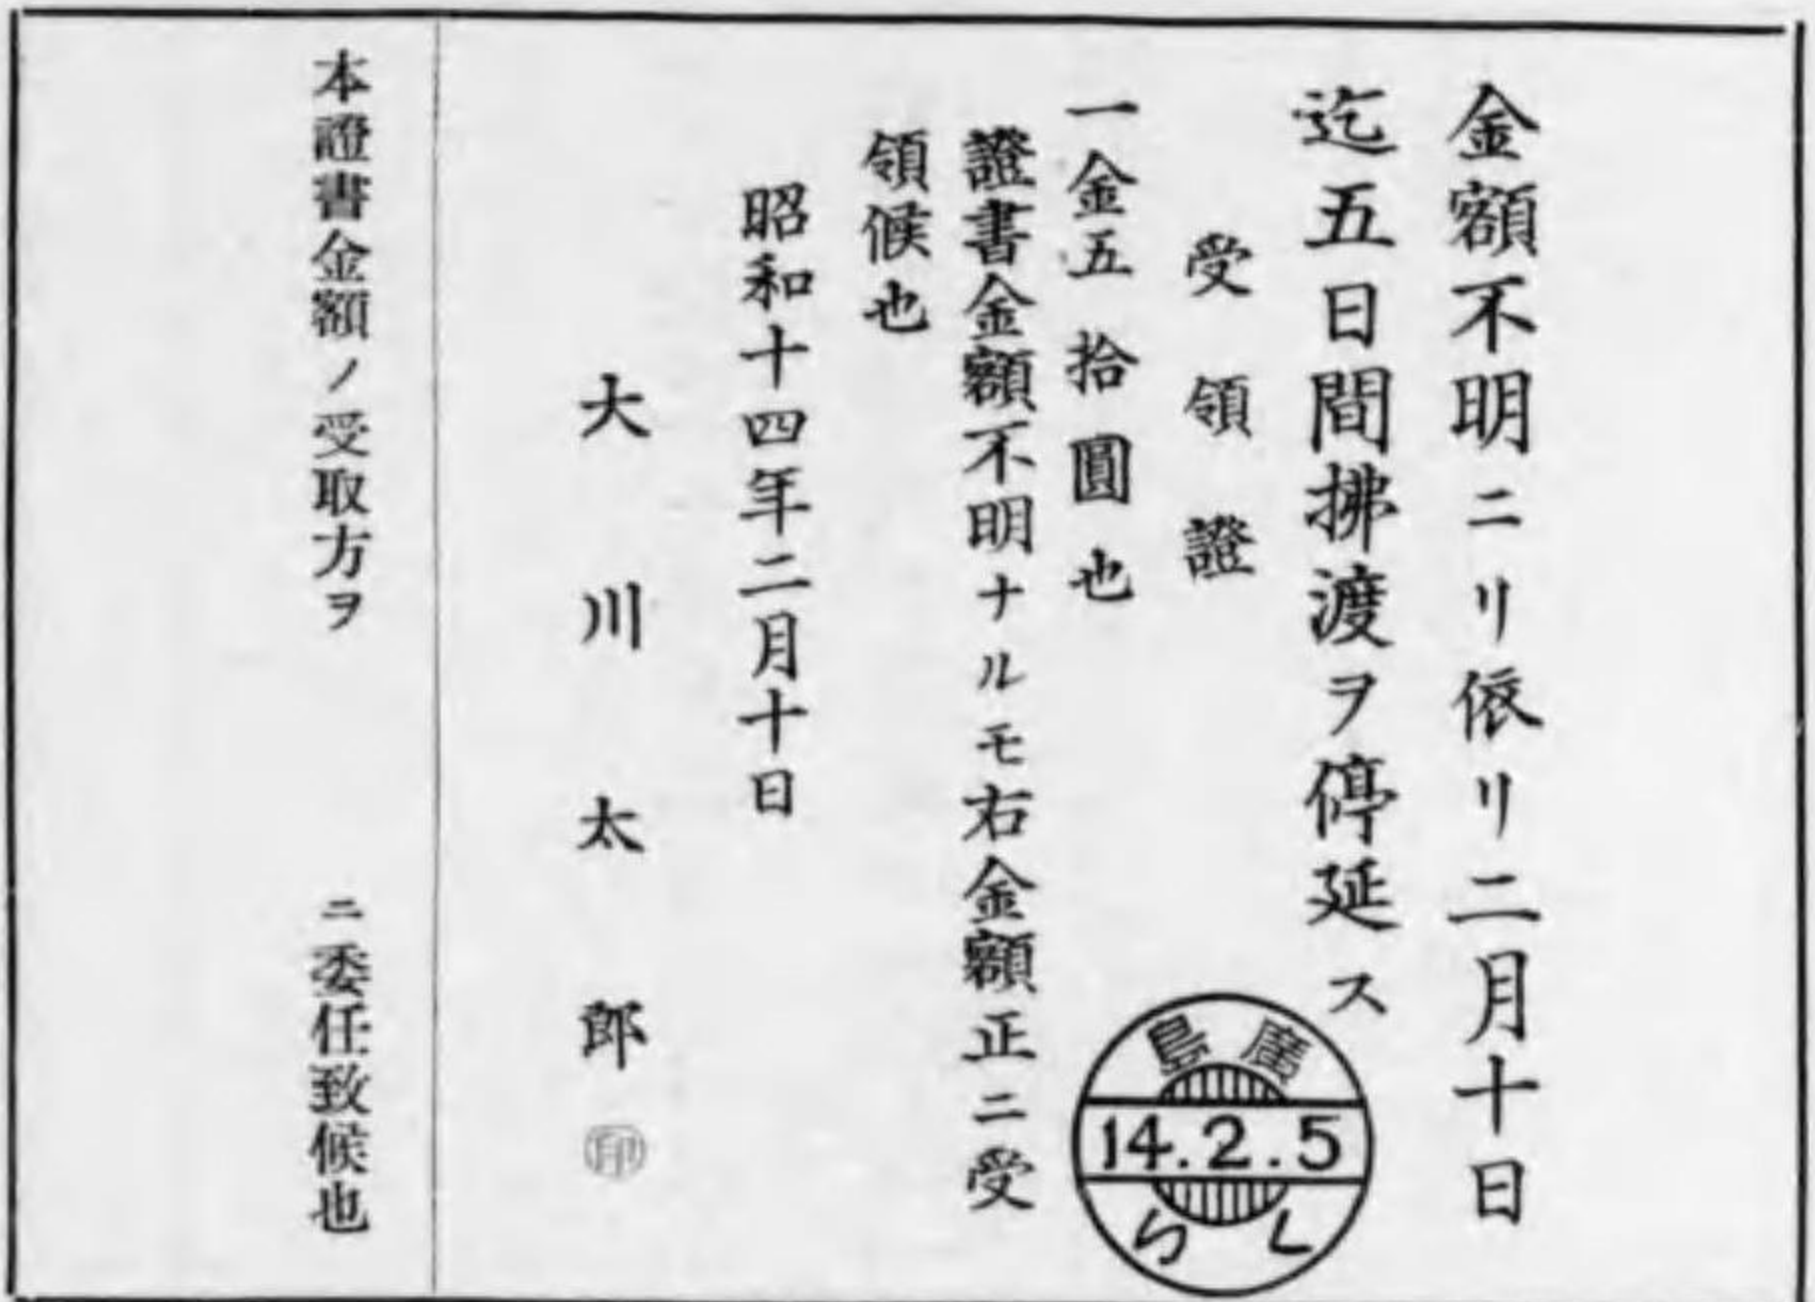 金額不明ニリ依リ二月十日
迄五日間拂渡ヲ停延ス
受領證
一金五拾圓也
證書金額不明ナルモ右金額正ニ受
領候也
昭和十四年二月十日
大川太郎 ㊞
廣島
14.2.5
しら
本證書金額ノ受取方ヲ ニ委任致候也